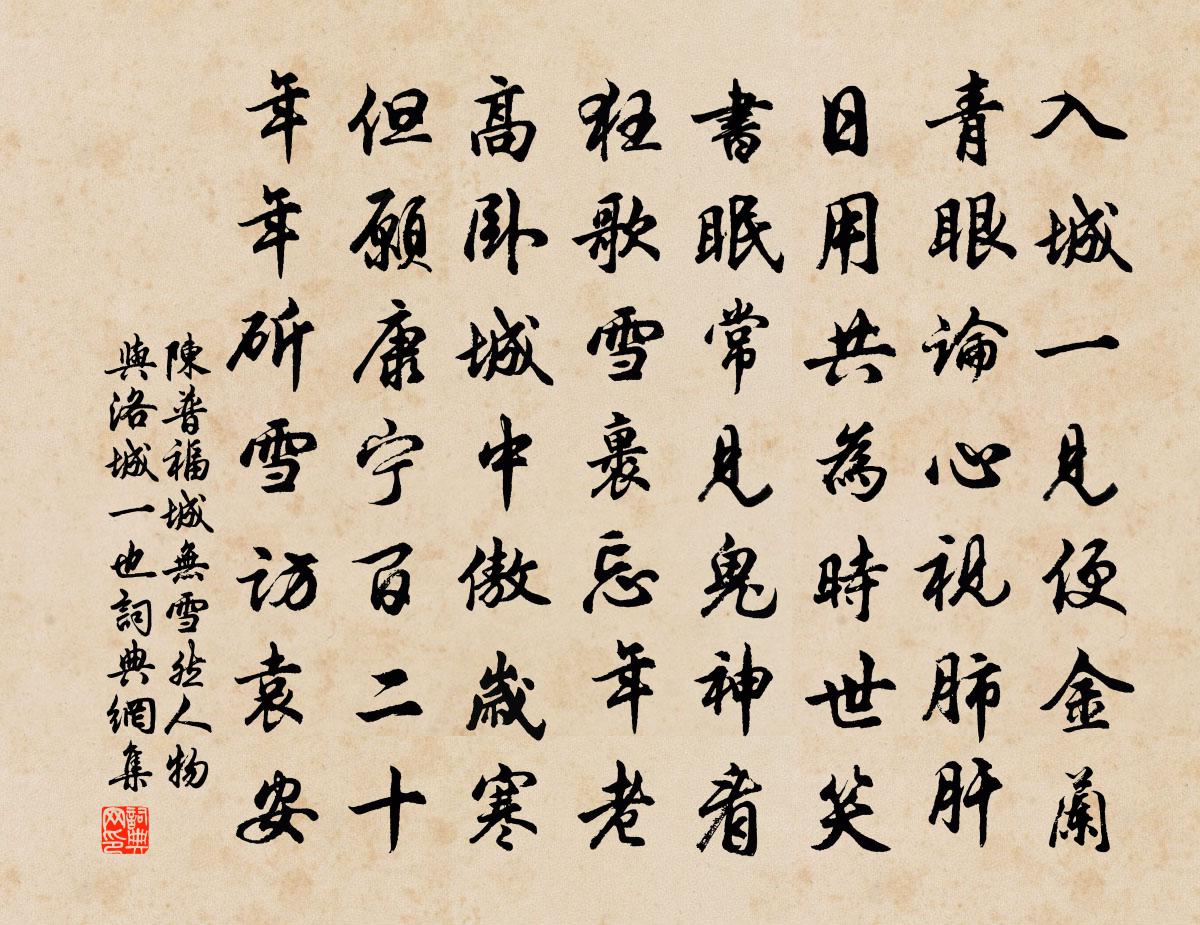 入城一見便金蘭
青眼論心視肺肝
日用共為時世笑
書眠常見鬼神看
狂歌雪裏忘年老
高臥城中傲歲寒
但願康宁百二十
年年斫雪訪袁安
陳普福城無雪然人物
與洛城一也詞典網集
詞典网印